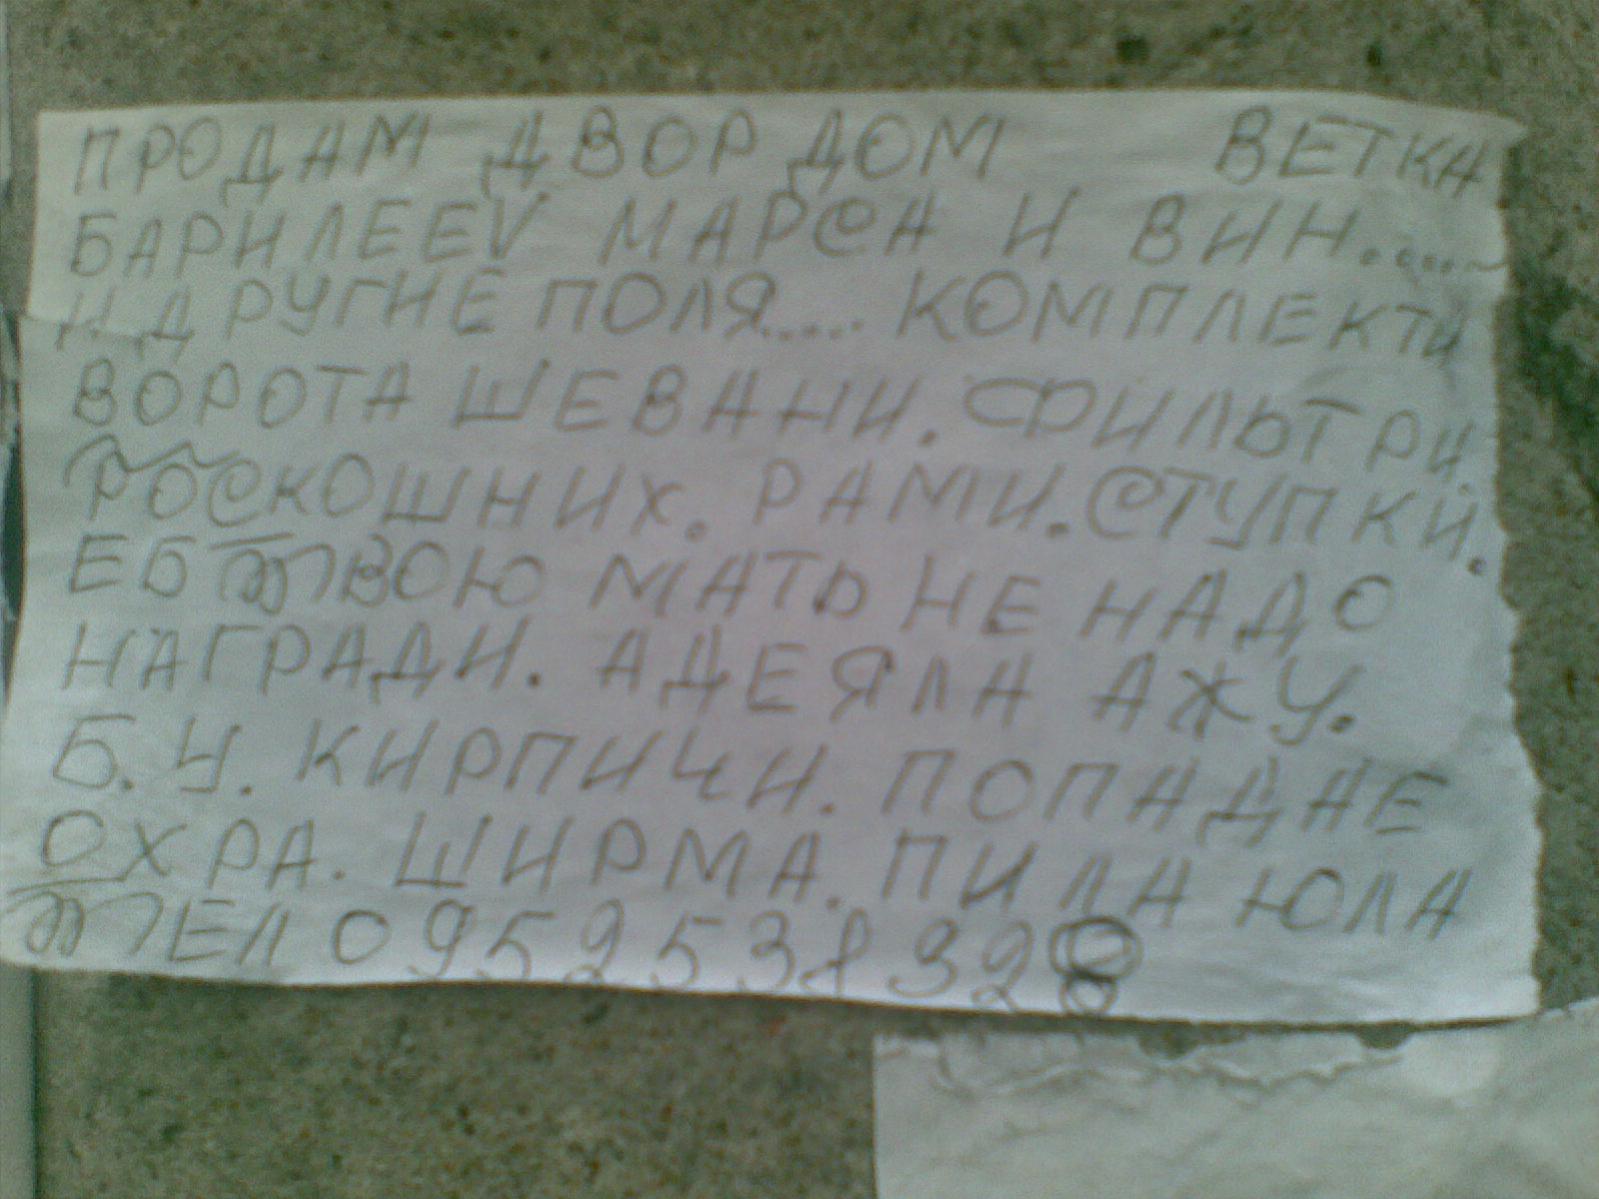 ПРОДАМ ДВОР ДОМ ВЕТКА
БАРИЛЕЕV МАРСА И ВИН.....
И ДРУГИЕ ПОЛЯ..... КОМПЛЕКТИ
ВОРОТА ШЕВАНИ. ФИЛЬТРИ.
РОСКОШНИХ. РАМИ. СТУПКИ.
ЕБ ТВОЮ МАТЬ НЕ НАДО
НАГРАДИ. АДЕЯЛА АЖУ.
Б. У. КИРПИЧИ. ПОПАДАЕ
ОХРА. ШИРМА. ПИЛА ЮЛА
ТЕЛ 0952538928